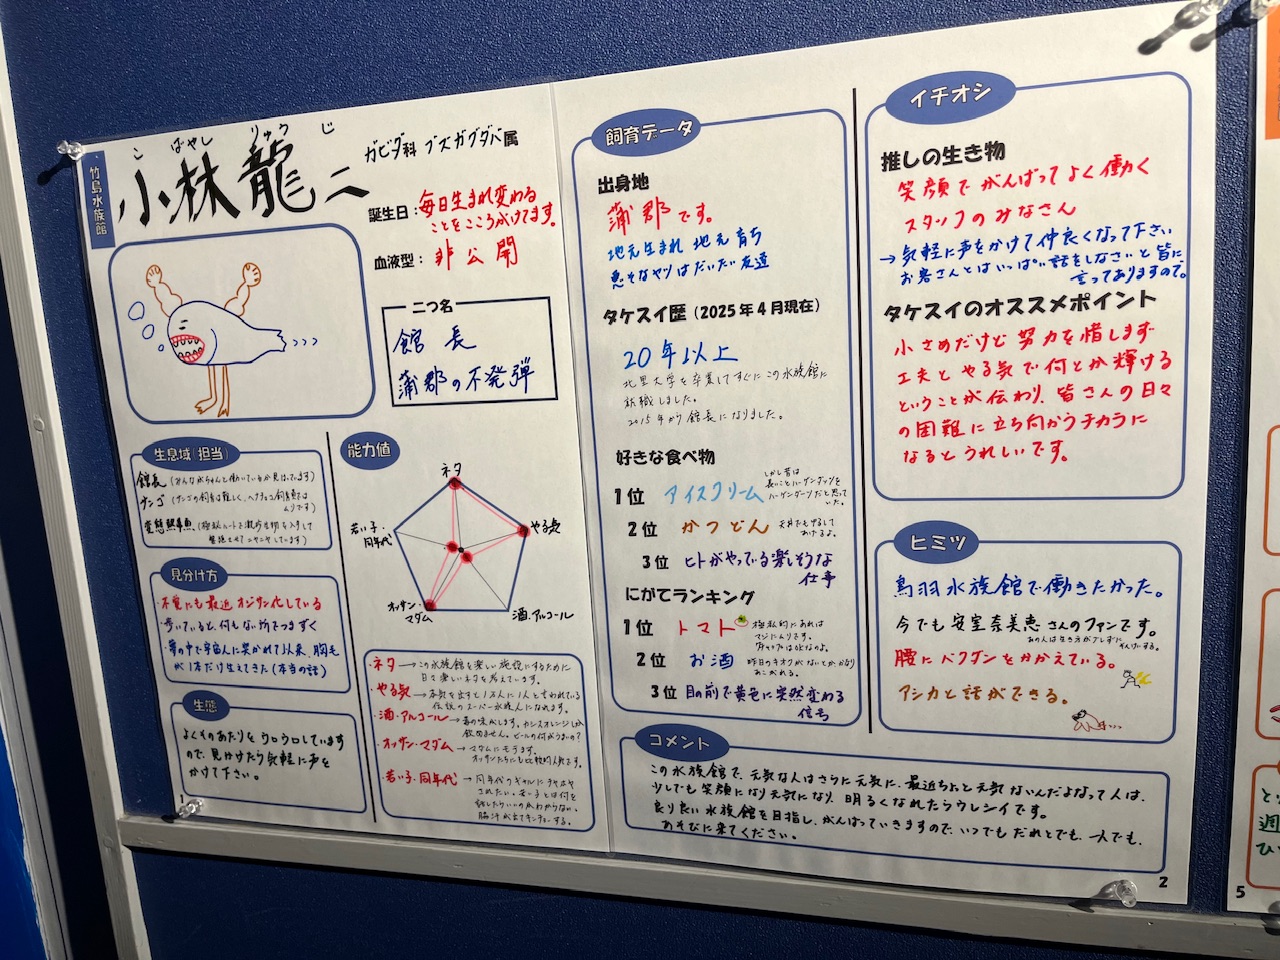 竹島水族館
こばやし りゅうじ
小林龍二
ガビダ科 ブスガグダバ属
誕生日：毎日生まれ変わる
ことをこころがけてます。
血液型：非公開
二つ名
館長
蒲郡の不発弾
生息域(担当)
館長（みんながちゃんと働いているか見はっています）
サンゴ
見分け方
・不覚にも最近オジサン化している
・歩いていると、何もない所でつまずく
・夢の中で宇宙人に突かれて以来、胸毛
が1本だけ生えてきた(本当の話)
生態
よくそのあたりをウロウロしていますので、見分けたら気軽に声を
かけて下さい。
1
能力値
ネタ
やる気
酒・アルコール
オッサン・
マダム
若い子・
同年代
・ネタ→この水族館を楽しい施設にするために
日々楽しいネタを考えています。
・やる気→本気を出すと1万人に1人と言われている
伝説のスーパー水族人になれます。
・酒・アルコール→毒の味がします。カシスオレンジしか
飲めません。ビールの何がうまいの？
・オッサン・マダム→マダムにモテます。
オッサンたちにも比較的人気です。
・若い子・同年代→同年代のギャルにチヤホヤ
されたい。若い子とは何を
話したらいいのかわからない。
脳汁が出てキンチョーする。
飼育データ
出身地
蒲郡です。
地元生まれ 地元育ち
悪そなヤツはだいたい友達
タケスイ歴（2025年4月現在）
20年以上
北里大学を卒業してすぐにこの水族館に
就職しました。
2015年から館長になりました。
好きな食べ物
1位 アイスクリーム
しかし昔は
長いことハーゲンダッツを
ハーゲンダーツだと思って
いた。
2位 かつどん
3位 ヒトがやっている楽しそうな
仕事
にがてランキング
1位 トマト
2位 お酒 昨日のキオクがないとかかなり
あこがれる。
3位 目の前で黄色に突然変わる
信号
イチオシ
推しの生き物
笑顔でがんばってよく働く
スタッフのみなさん
→気軽に声をかけて仲良くなって下さい
お客さんとはいっぱい話をしなさいと皆に
言ってありますので。
タケスイのオススメポイント
小さめだけど努力を惜します
工夫とやる気で何とか輝ける
ということが伝わり、皆さんの日々
の困難に立ち向かうチカラに
なるとうれしいです。
ヒミツ
鳥羽水族館で働きたかった。
今でも安室奈美恵さんのファンです。
あの人は生き方がブレずにそんけいする。
腰にバクダンをかかえている。
アシカと話ができる。
コメント
この水族館で、元気な人はさらに元気に、最近ちょっと元気ないんだよなって人は、
少しでも笑顔になり元気になり、明るくなれたらウレシイです。
良り良い水族館を目指し、がんばっていきますので、いつでもだれとでも、一人でも、
あそびに来てください。
2
5